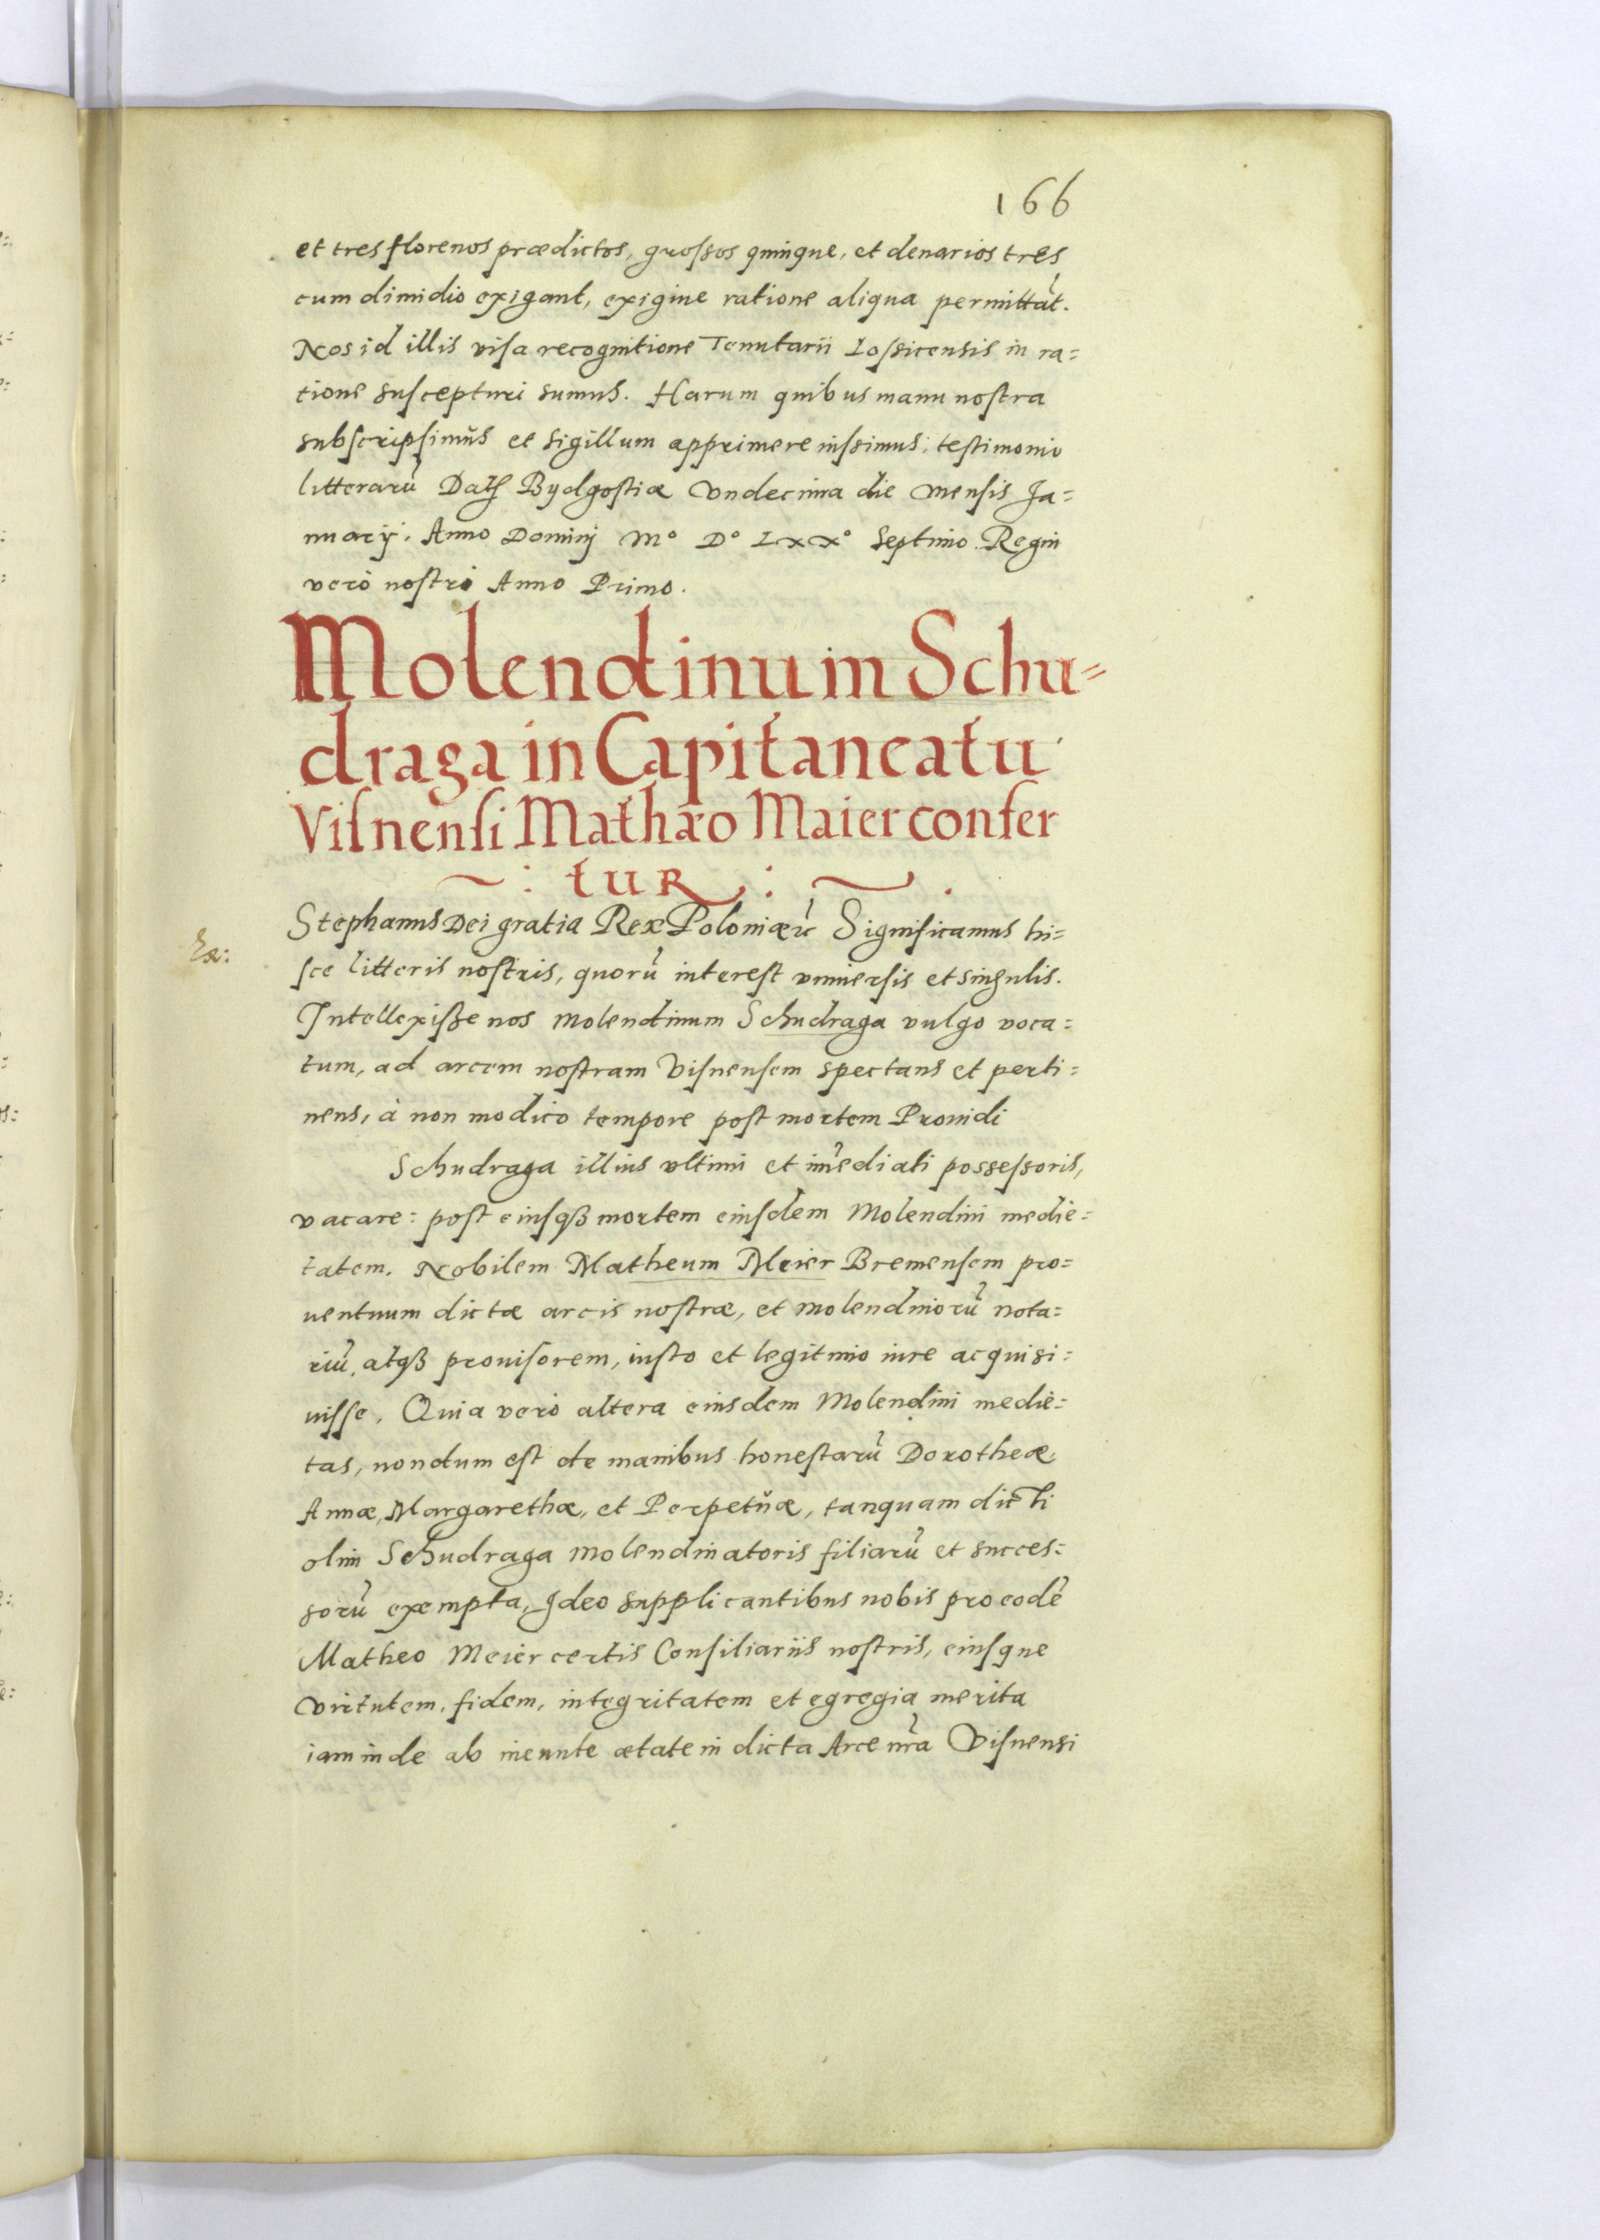 166
et tres florenos prædictos, grossos quinque, et denarios tres
cum dimidio exigant, exigiue ratione aliqua permittãt.
Nos id illis visa recognitione Tenutarii Lossicensis in ra=
tione suscepturi sumus. Harum quibus manu nostra
subscripsimus et sigillum apprimere iussimus, testimonio
litterarũ Dat Bydgostiæ Vndecima die mensis Ja=
nuarij. Anno Dominj Mº Dº LXXº Septimo. Regni
verò nostri Anno Primo.
Molendinum Schu=
draga in Capitaneatu
Visnensi Mathæo Maier confer
: tur :
Stephanus Dei gratia Rex Poloniæ rc̃ Significamus hi=
sce litteris nostris, quorũ interest vniuersis et singulis.
Intellexisße nos molendinum Schudraga vulgo voca=
tum, ad arcem nostram Visnensem spectans et perti=
nens, à non modico tempore post mortem Prouidi
Schudraga illius vltimi et im̃ediati possessoris,
vacare: post eiusqß mortem eiusdem Molendini medie=
tatem. Nobilem Matheum Meier Bremensem pro=
uentuum dictæ arcis nostræ, et molendinorũ nota=
riũ, atqß prouisorem, iusto et legitimo iure acquisi=
uisse. Quia verò altera eiusdem Molendini medie=
tas, nondum est de manibus honestarũ Dorotheæ
Annæ, Margarethæ, et Perpetuæ, tanquam dicti
olim Schudraga molendinatoris filiarũ et succes=
sorũ exempta, Ideo supplicantibus nobis pro eodẽ
Matheo Meier certis Consiliariis nostris, eiusque
virtutem, fidem, integritatem et egregia merita
iam inde ab ineunte ætate in dicta Arce nr̃a Visnensi